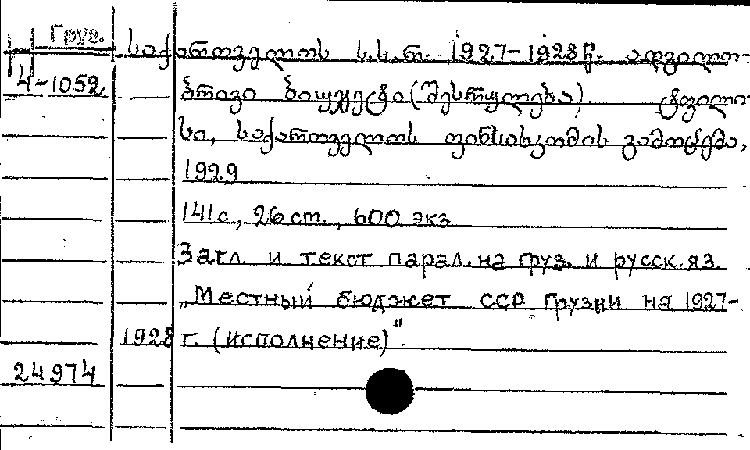 Груз.
საქართველოს ს.ს.რ. 1927-1928 წ. ადგილო-
4-1052
ბრივი ბიუჯეტი (შესრულება). ტფილი-
სი, საქართველოს ფინსახკომის გამოცემა,
1929
141 с, 26 ст., 600 экз
Загл. и текст парал. на груз. и русск. яз.
„Местный бюджет ССР Грузии на 1927-
1928 г. (исполнение)"
24974